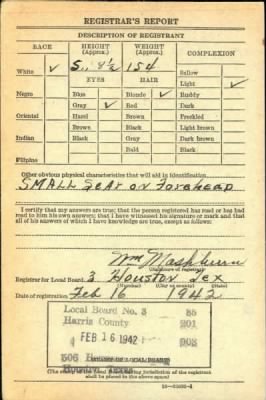 REGISTRAR'S REPORT
DESCRIPTION OF REGISTRANT
RACE HEIGHT (Approx.) WEIGHT (Approx.) COMPLEXION
White ✓ 5.. 8½ 154 Sallow
EYES HAIR Light ✓
Negro Blue Blonde ✓ Ruddy
Gray ✓ Red Dark
Oriental Hazel Brown Freckled
Brown Black Light brown
Indian Black Gray Dark brown
Bald Black
Filipino
Other obvious physical characteristics that will aid in identification
SMALL Scar on Forehead
I certify that my answers are true; that the person registered has read or has had
read to him his own answers; that I have witnessed his signature or mark and that
all of his answers of which I have knowledge are true, except as follows:
Wm Mashburn
(Signature of registrar)
Registrar for Local Board 3 Houston Tex
(Number) (City or county) (State)
Date of registration Feb 16 1942
Local Board No. 3 85
Harris County 201
FEB 16 1942 003
506
Houston, Texas
(STAMP OF LOCAL BOARD)
(The stamp of the Local Board having jurisdiction of the registrant
shall be placed in the above space)